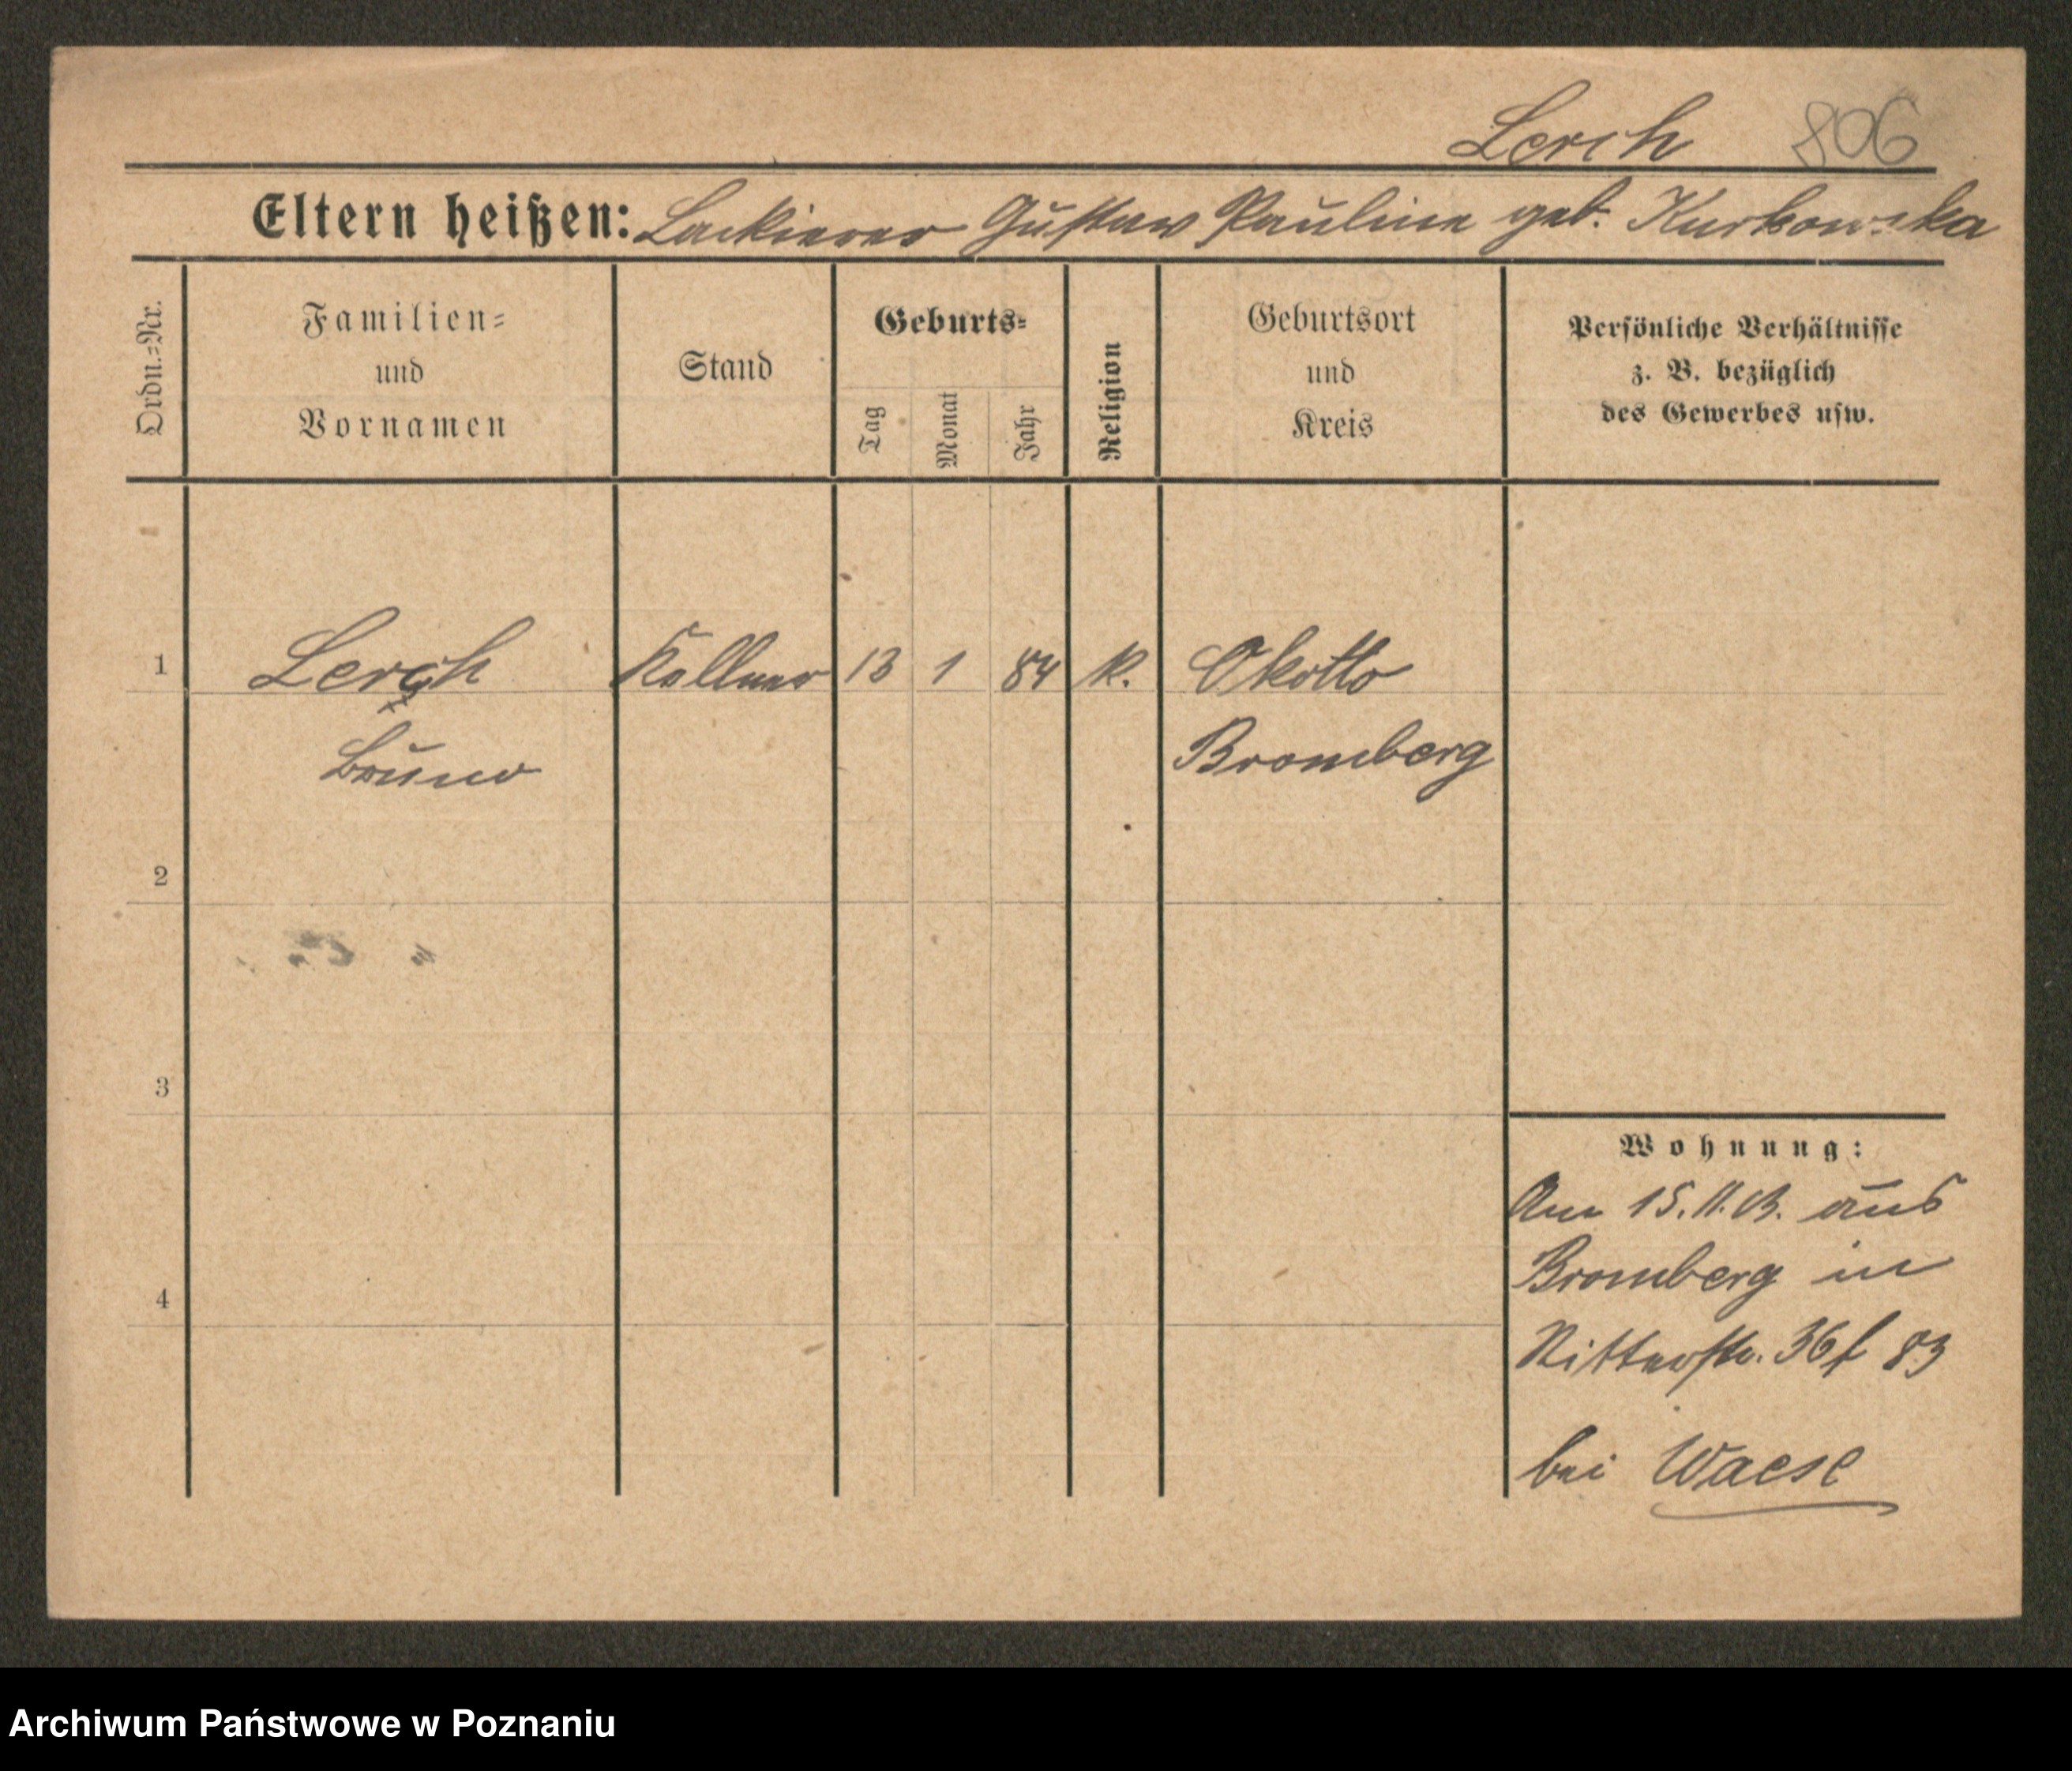 Lerch 806
Eltern heißen: Lackierer Gustav Pauline geb. Kurkowska
Ordn.=Nr.
Familien=
und
Vornamen
Stand
Geburts=
Tag
Monat
Jahr
Religion
Geburtsort
und
Kreis
Persönliche Verhältnisse
z. B. bezüglich
des Gewerbes usw.
1 Lerch Kellner 13 1 84 k. Okollo
Bruno Bromberg
2
3
4
Wohnung:
Am 15.11.03. aus
Bromberg in
Ritterstr. 36 f 83
bei Waese
Archiwum Państwowe w Poznaniu